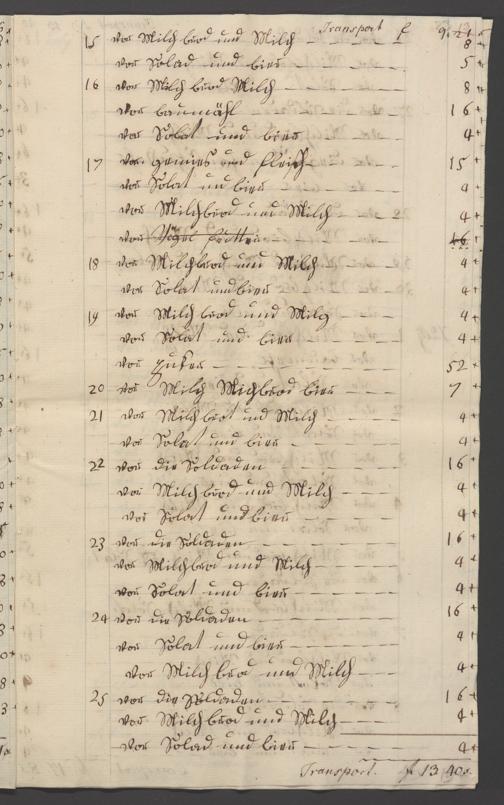 Transport f 9. 21
15 von Milch brod und Milch 8
von Solad und bier 5
16 von Milch brod Milch 8
von baumöhl 16
von Solat und bier 4
17 von gemies und fleisch 15
von Solat und bier 4
von Milchbrod und Milch 4
von Vögel 16
18 von Milchbrod und Milch 4
von Solat und bier 4
19 von Milch brod und Milch 4
von Solat und bier 4
von zuker 52
20 von Milch Milchbrod bier 7
21 von Milch brot und Milch 4
von Solat und bier 4
22 von die Soldaden 16
von Milch brod und Milch 4
von Solat und bier 4
23 von die Soldaden 16
von Milchbrod und Milch 4
von Solat und bier 4
24 von die Soldaden 16
von Solat und bier 4
von Milch brod und Milch 4
25 von die Soldaden 16
von Milch brod und Milch 4
von Solad und bier 4
Transport. f 13 40